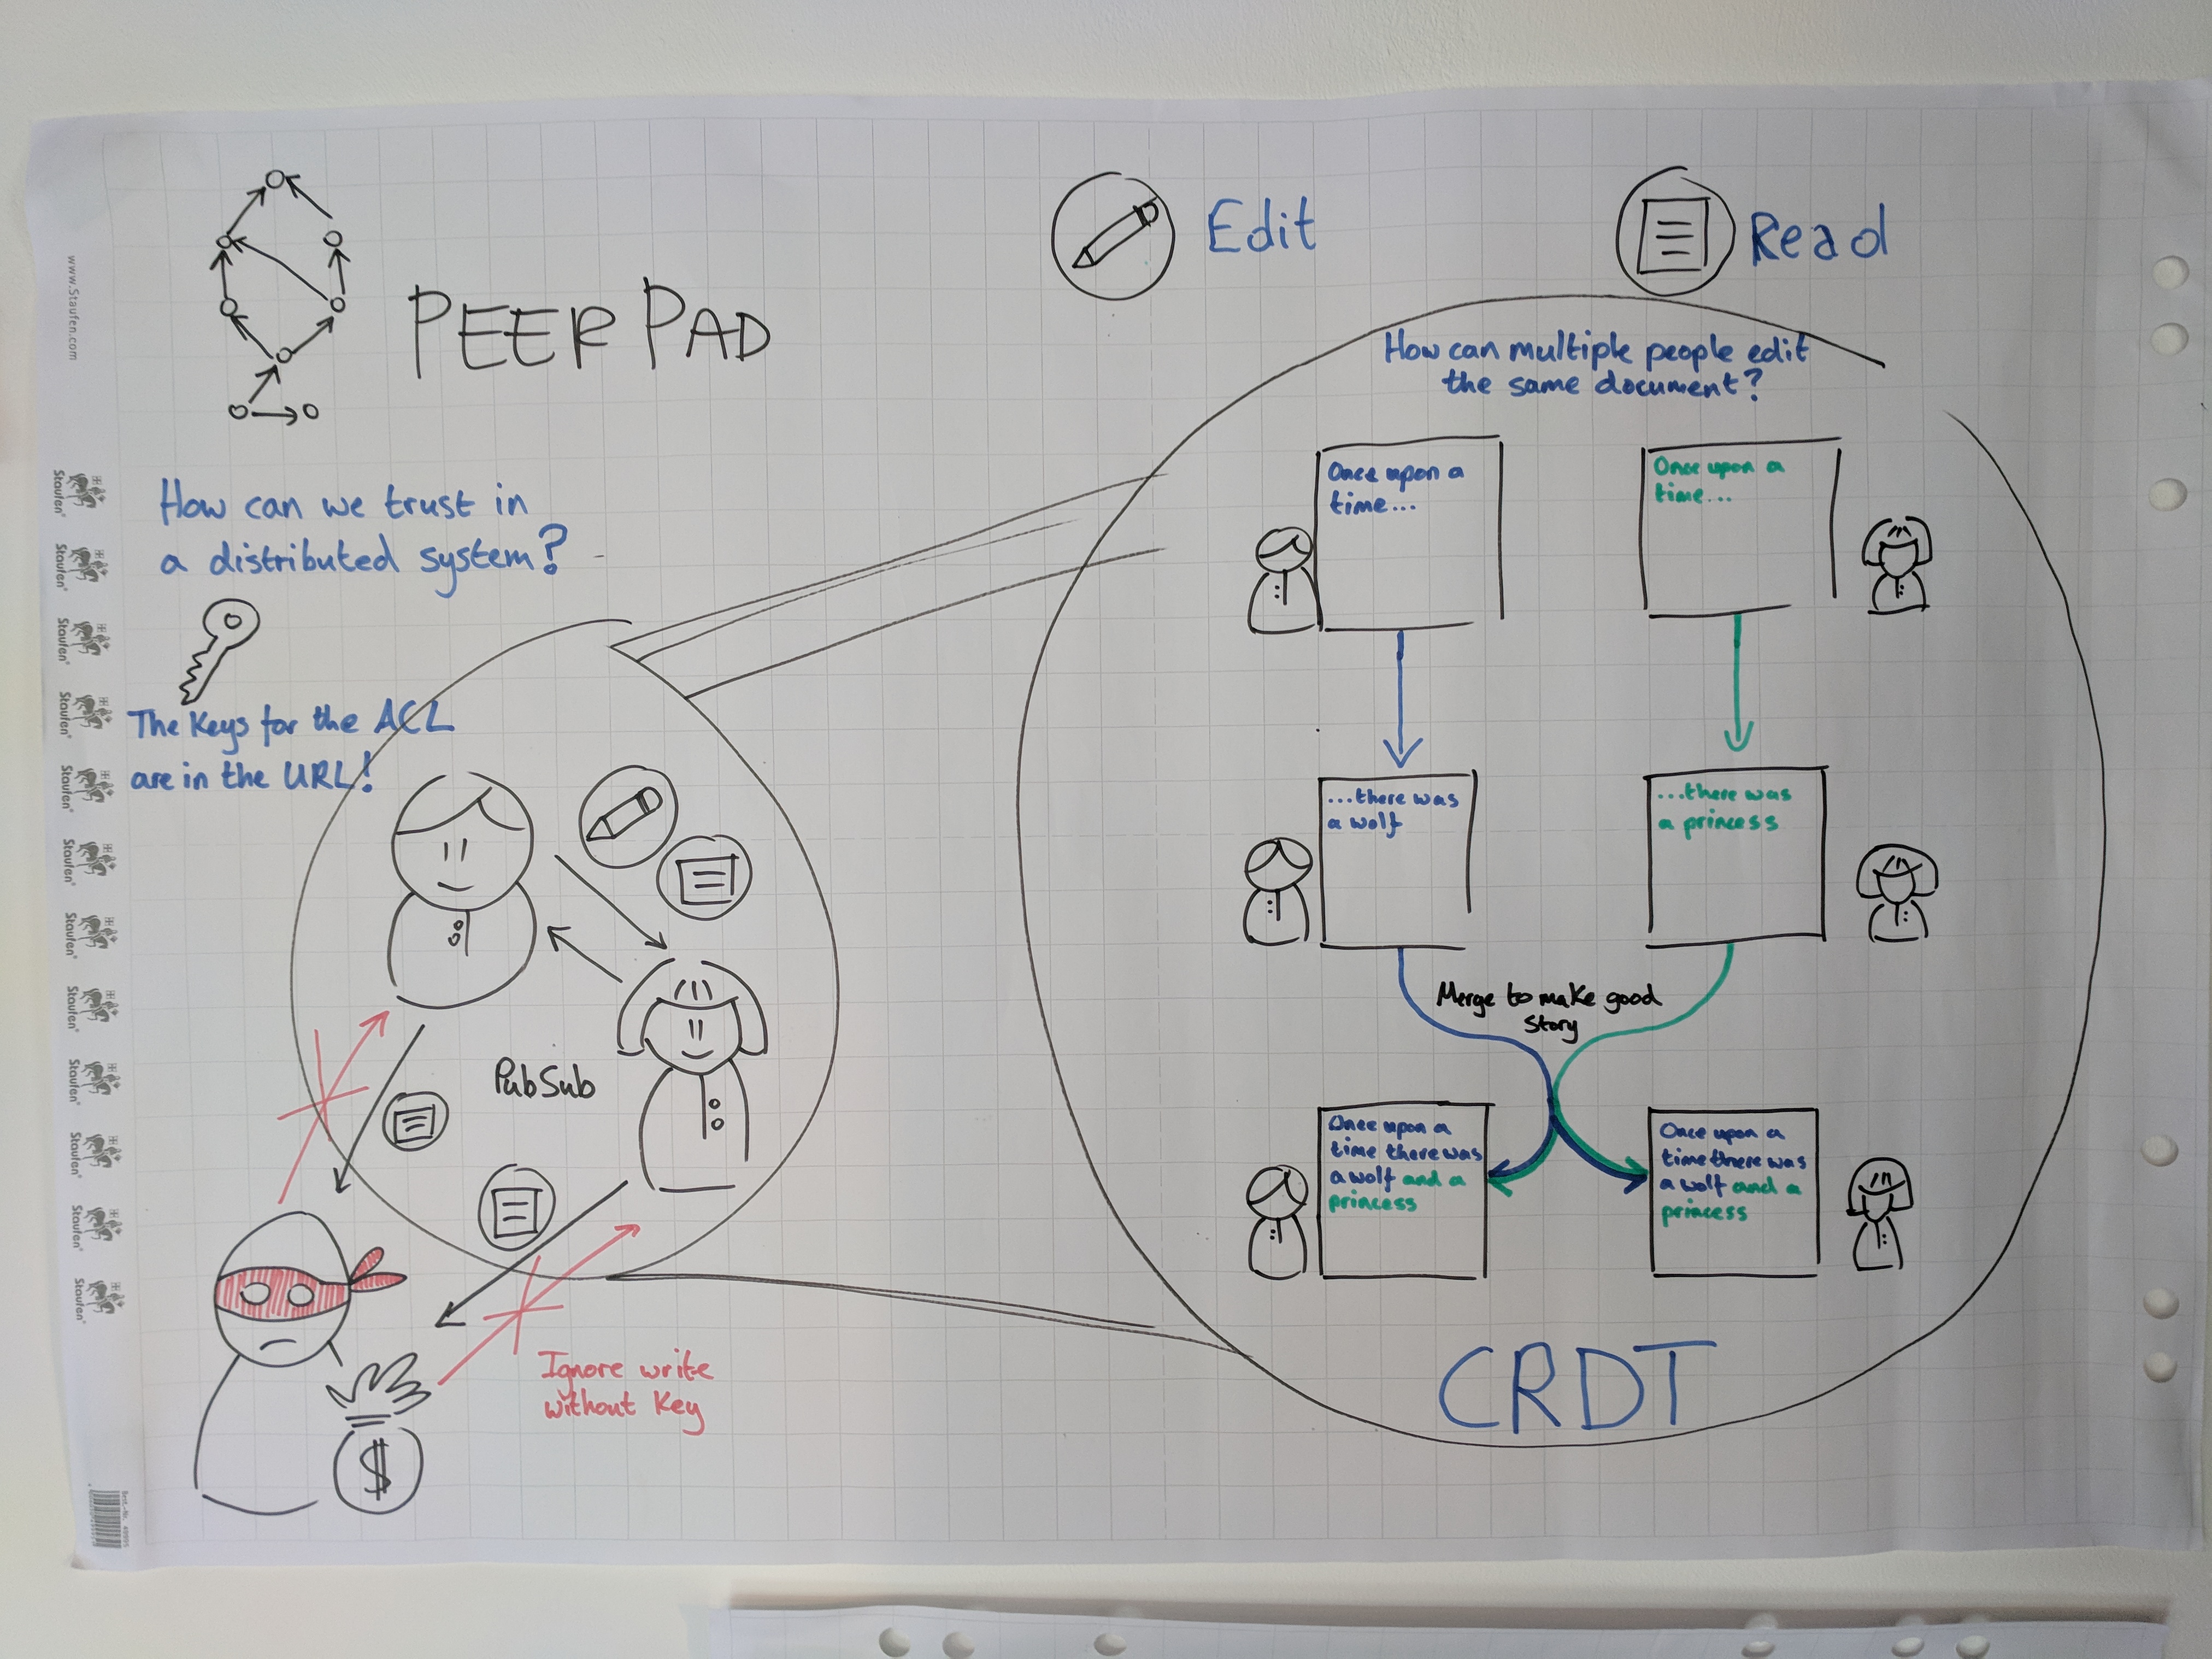 PEER PAD
Edit
Read
How can we trust in
a distributed system?
The Keys for the ACL
are in the URL!
PubSub
Ignore write
without Key
$
How can multiple people edit
the same document?
Once upon a
time...
Once upon a
time...
...there was
a wolf
...there was
a princess
Merge to make good
story
Once upon a
time there was
a wolf and a
princess
Once upon a
time there was
a wolf and a
princess
CRDT
www.Staufen.com
Staufen
Staufen
Staufen
Staufen
Staufen
Staufen
Staufen
Staufen
Staufen
Staufen
Staufen
Staufen